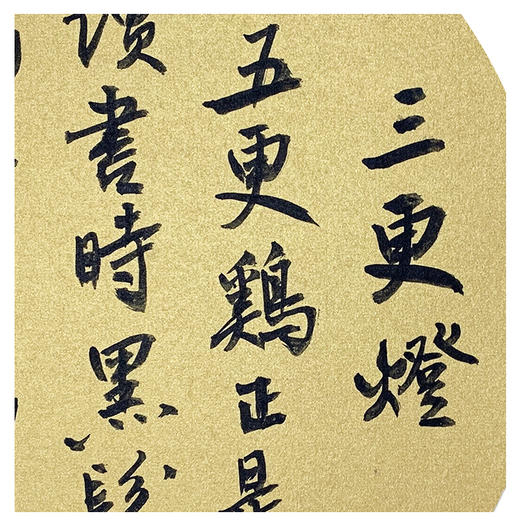 三更燈
五更鷄正是
讀書時黑髮